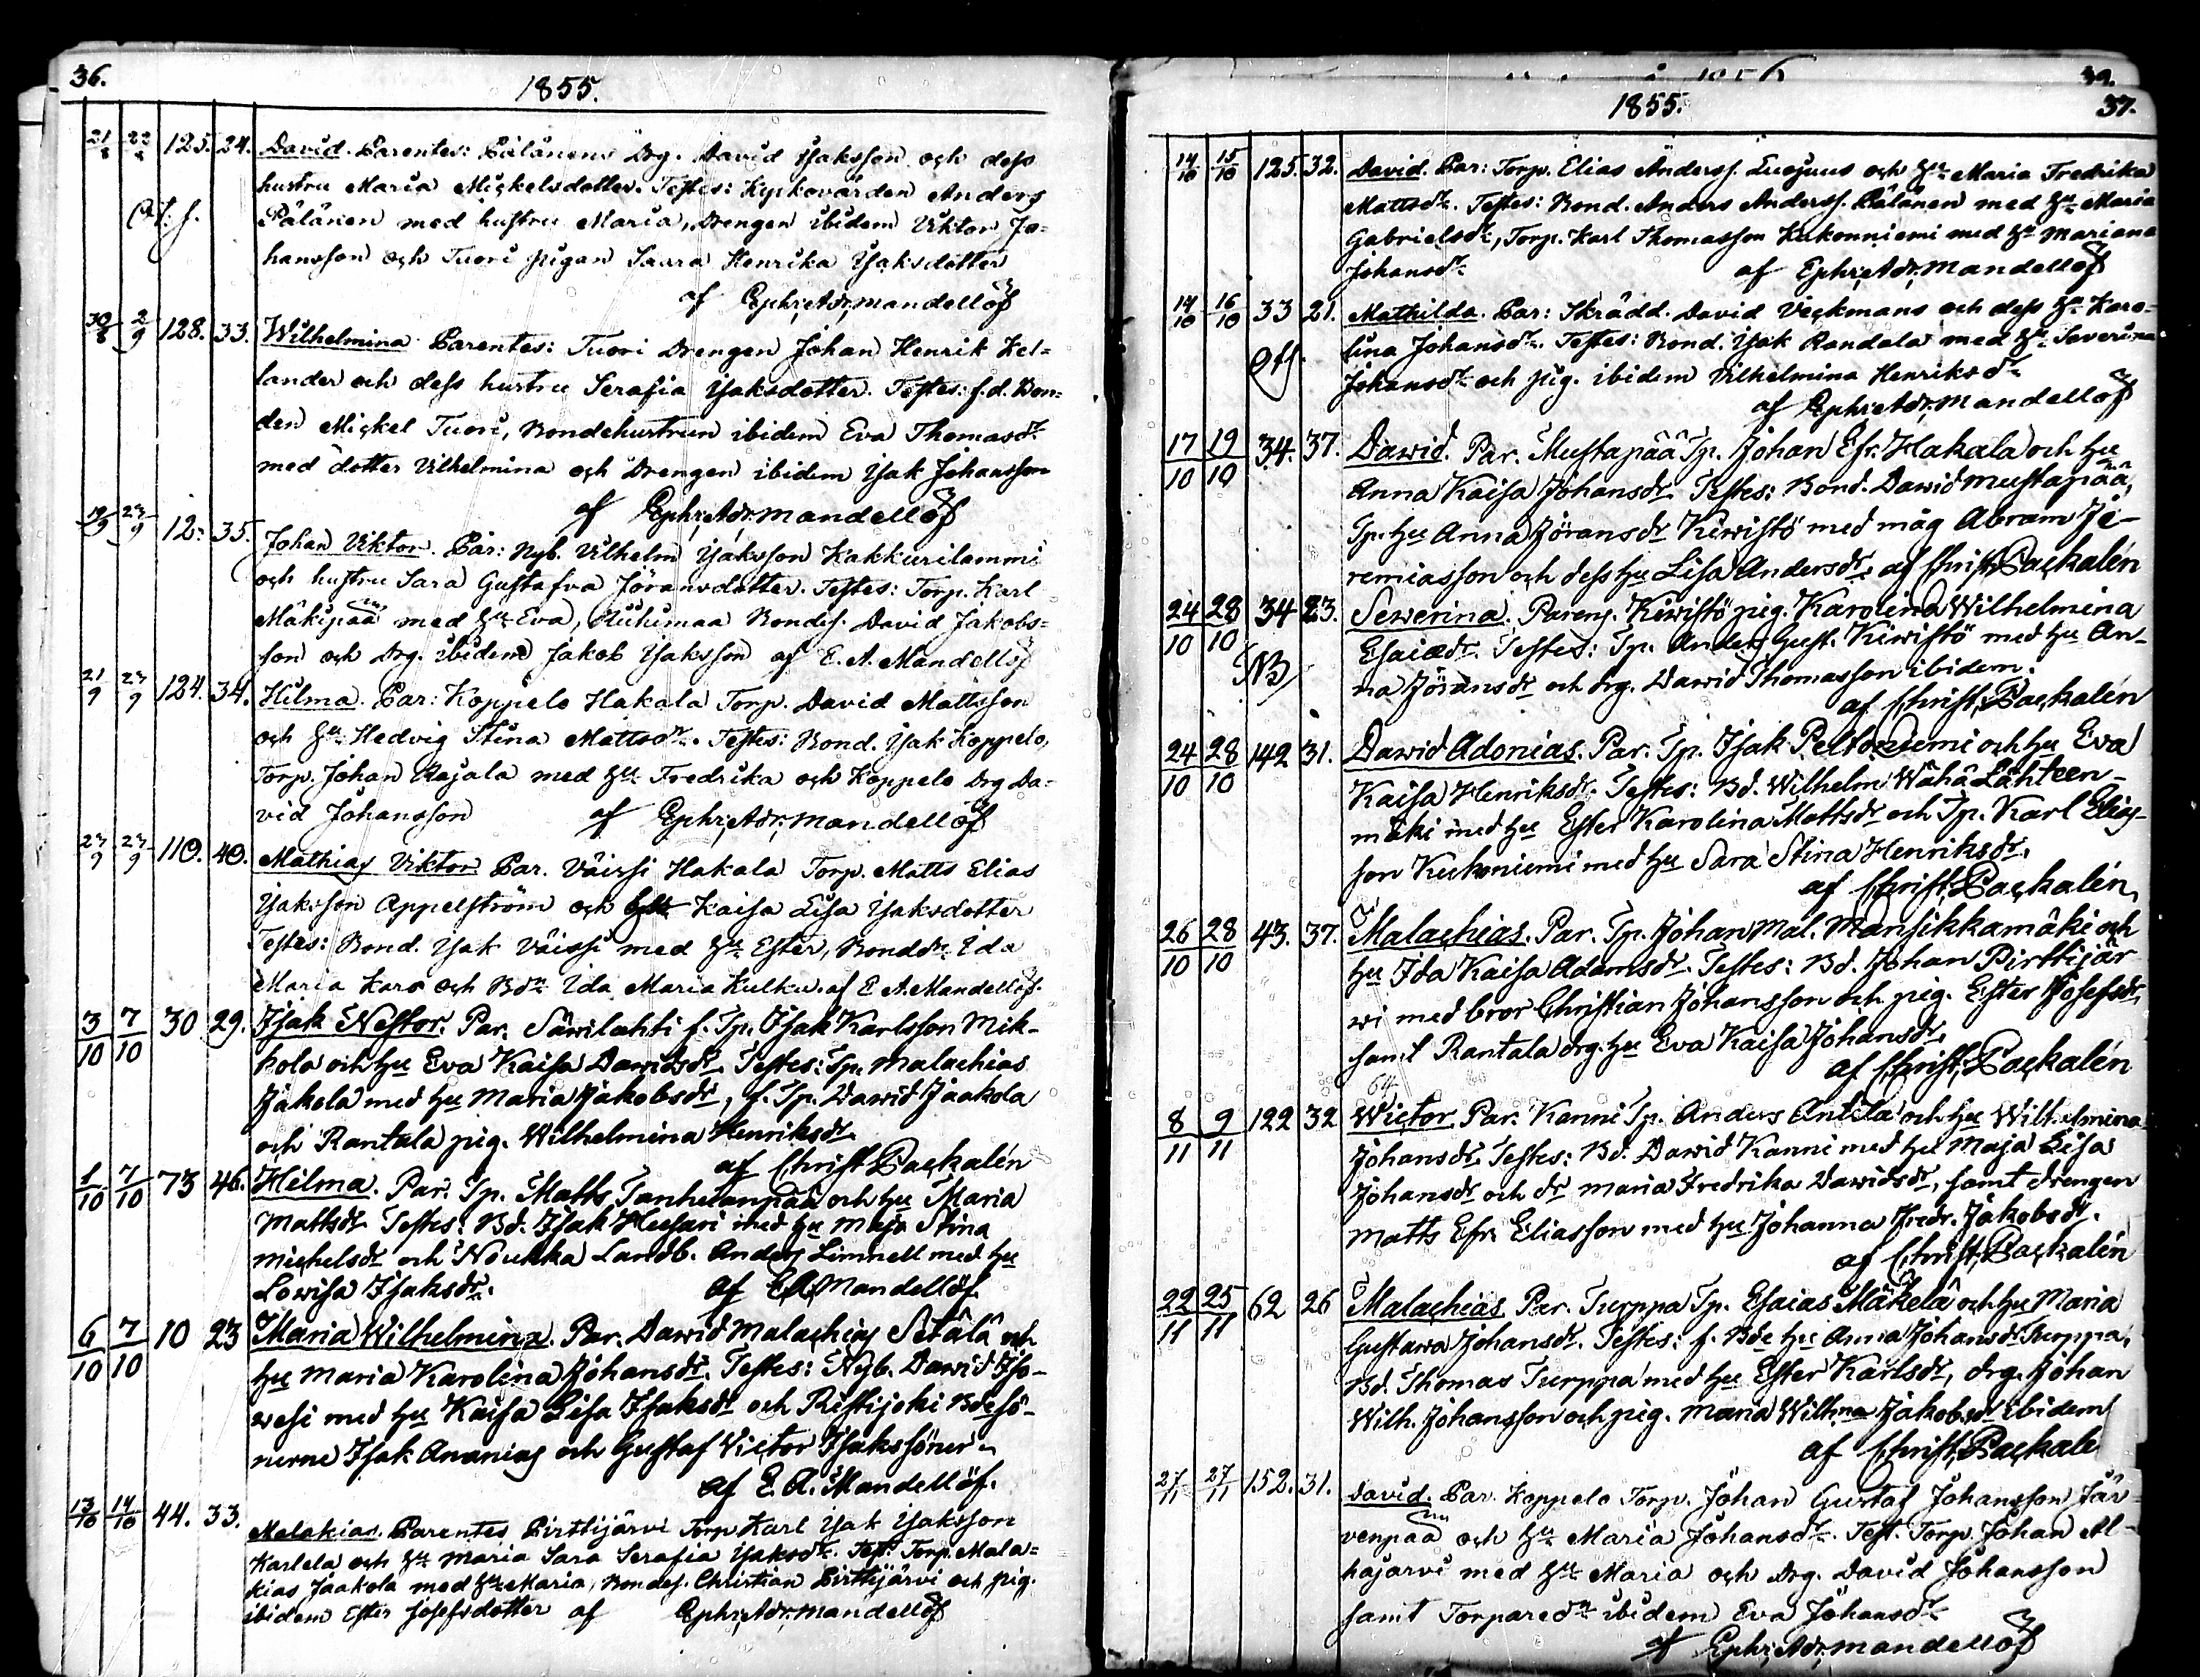 36.
1855.
21/8 22/8 125. 24. David. Parentes: Pälänens Drg. David Isaksson och dess
hustru Maria Mickelsdotter. Testes: Kyrkovärden Anders
Pälänen med hustru Maria, Drengen ibidem Viktor Jo=
hansson och Tuori pigan Saara Henrika Isaksdotter
af Ephr. Adr. Mandellöf
30/8 2/9 128. 33. Wilhelmina. Parentes: Tuori Drengen Johan Henrik Kel=
lander och dess hustru Serafia Isaksdotter. Testes: f.d. Bon=
den Mickel Tuori, Bondehustrun ibidem Eva Thomasdr
med dotter Vilhelmina och Drengen ibidem Isak Johansson
af Ephr. Adr. Mandellöf
19/9 23/9 12. 35. Johan Viktor. Par: Nyb. Vilhelm Isaksson Kakkurilammi
och hustru Sara Gustafva Jöransdotter. Testes: Torp. Karl
Mäkipää med Hu Eva, Ruhimaa Bondes. David Jakobs=
son och Drg. ibidem Jakob Isaksson af E. A. Mandellöf
21/9 23/9 124. 34. Hilma. Par: Koppelo Hakala Torp. David Mattsson
och Hu Hedvig Stina Mattsdr. Testes: Bond. Isak Koppelo,
Torp. Johan Rajala med Hu Fredrika och Koppelo Drg Da=
vid Johansson af Ephr. Adr. Mandellöf
23/9 23/9 110. 40. Mathias Viktor Par. Väissi Hakala Torp. Matts Elias
Isaksson Appelström och Hu Kaisa Lisa Isaksdotter
Testes: Bond. Isak Väissi med Hu Ester, Bonddr. Ida
Maria Karo och Bdn Ida Maria Kulku. af E A. Mandellöf.
3/10 7/10 30 29. Isak Nestor. Par. Säwilahti f. Tp. Isak Karlsson Mik-
kola och hu Eva Kaisa Dawidsdr. Testes: Tp. Malachias
Jakola med hu Maria Jakobsdr, f. Tp. Dawid Jaakola
och Rantala pig. Wilhelmina Henriksdr.
af Christ. Packalén
1/10 7/10 73 46. Hilma. Par. Tp. Matts Tanhuanpää och hu Maria
Mattsdr Testes: Bd. Isak Husari med hu Maja Stina
Michelsdr och Noukka Landb. Anders Limnell med hu
Lowisa Isaksdr. af E A Mandellöf.
6/10 7/10 10 23 Maria Wilhelmina. Par. Dawid Malachias Setälä och
hu Maria Karolina Johansdr. Testes: Nyb. Dawid Iso-
wesi med hu Kaisa Lisa Isaksdr och Ristijoki Bdesö-
nerne Isak Ananias och Gustaf Victor Isakssöner.
af E. A. Mandellöf.
13/10 14/10 44. 33. Malakias. Parentes Pirttijärvi Torp Karl Isak Isaksson
Karlela och Hu Maria Sara Serafia Isaksdr. Test: Torp. Mala=
kias Jaakola med Hu Maria, Bondes. Christian Pirttijärvi och pig.
ibidem Ester Josefsdotter af Ephr. Adr. Mandellöf
39.
1855.
37.
14/10 15/10 125. 32. David. Par: Torp. Elias Anderss. Luojus och Hu Maria Fredrika
Mattsdr. Testes: Bond. Anders Anderss. Pälänen med Hu Maria
Gabrielsdr, Torp. Karl Thomasson Kukonniemi med Hu Mariana
Johansdr af Ephr. Adr. Mandellöf
14/10 16/10 33 21. Mathilda. Par: Skrädd. David Veckmans och dess Hu Karo=
lina Johansdr. Testes: Bond. Isak Randala med Hu Severina
Johansdr och pig. ibidem Vilhelmina Henriksdr
af Ephr. Adr. Mandellöf
17/10 19/10 34. 37. Dawid. Par. Mustapää Tp. Johan Efr. Hakala och hu
Anna Kaisa Johansdr. Testes: Bond. Dawid Mustapää,
Tp. hu Anna Jöransdr Kiwistö med måg Abram Je-
remiasson och dess hu Lisa Andersdr. af Christ. Packalén
24/10 28/10 34 23. Sewerina. Parens. Kiwistö pig. Karolina Wilhelmina
NB
Esaiædr. Testes: Tp. Anders Gust. Kiwistö med hu An-
na Jöransdr och drg. Dawid Thomasson ibidem.
af Christ. Packalén
24/10 28/10 142 31. Dawid Adonias. Par. Tp. Isak Peltoniemi och hu Eva
Kaisa Henriksdr. Testes: Bd. Wilhelm Wähä Lähteen-
mäki med hu Ester Karolina Mattsdr och Tp. Karl Elias-
son Kukoniemi med hu Sara Stina Henriksdr.
af Christ. Packalén.
26/10 28/10 43. 37. Malachias. Par. Tp. Johan Mal. Mansikkamäki och
hu Ida Kaisa Adamsdr. Testes: Bd. Johan Pirttijär
wi med bror Christian Johansson och pig. Ester Josefsdr,
samt Rantala drg. hu Eva Kaisa Johansdr.
af Christ. Packalén
8/11 9/11 122 32 Wictor. Par. Kanni Tp. Anders Antila och hu Wilhelmina
Johansdr. Testes: Bd. Dawid Kanni med hu Maja Lisa
Johansdr och dr Maria Fredrika Dawidsdr, samt drengen
Matts Efr. Eliasson med hu Johanna Fredr. Jakobsdr.
af Christ. Packalén
22/11 25/11 62 26 Malachias. Par. Turppa Tp. Esaias Mäkelä och hu Maria
Gustawa Johansdr. Testes: f. Bde hu Anna Johansdr Turppa,
Bd. Thomas Turppa med hu Ester Karlsdr, drg. Johan
Wilh. Johansson och pig. Maria Wilhna Jakobsdr ibidem
af Christ. Packalé
27/11 27/11 152. 31. David. Par. Koppelo Torp. Johan Gustaf Johansson Jär
venpää och Hu Maria Johansdr. Test. Torp. Johan Al-
hajärvi med Hu Maria och Drg. David Johansson
samt Torparedr ibidem Eva Johansdr
af Ephr. Adr. Mandellöf